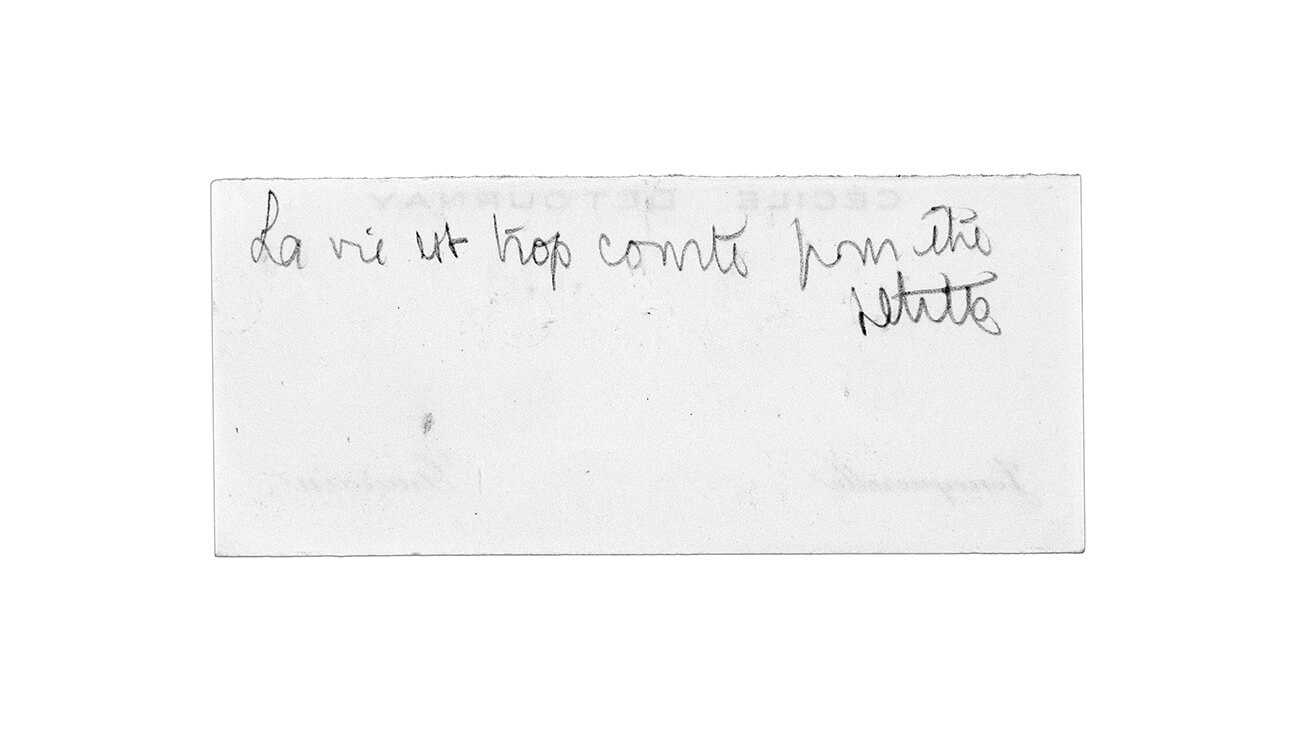 CÉCILE DETOURNAY
La vie est trop courte pour être
petite